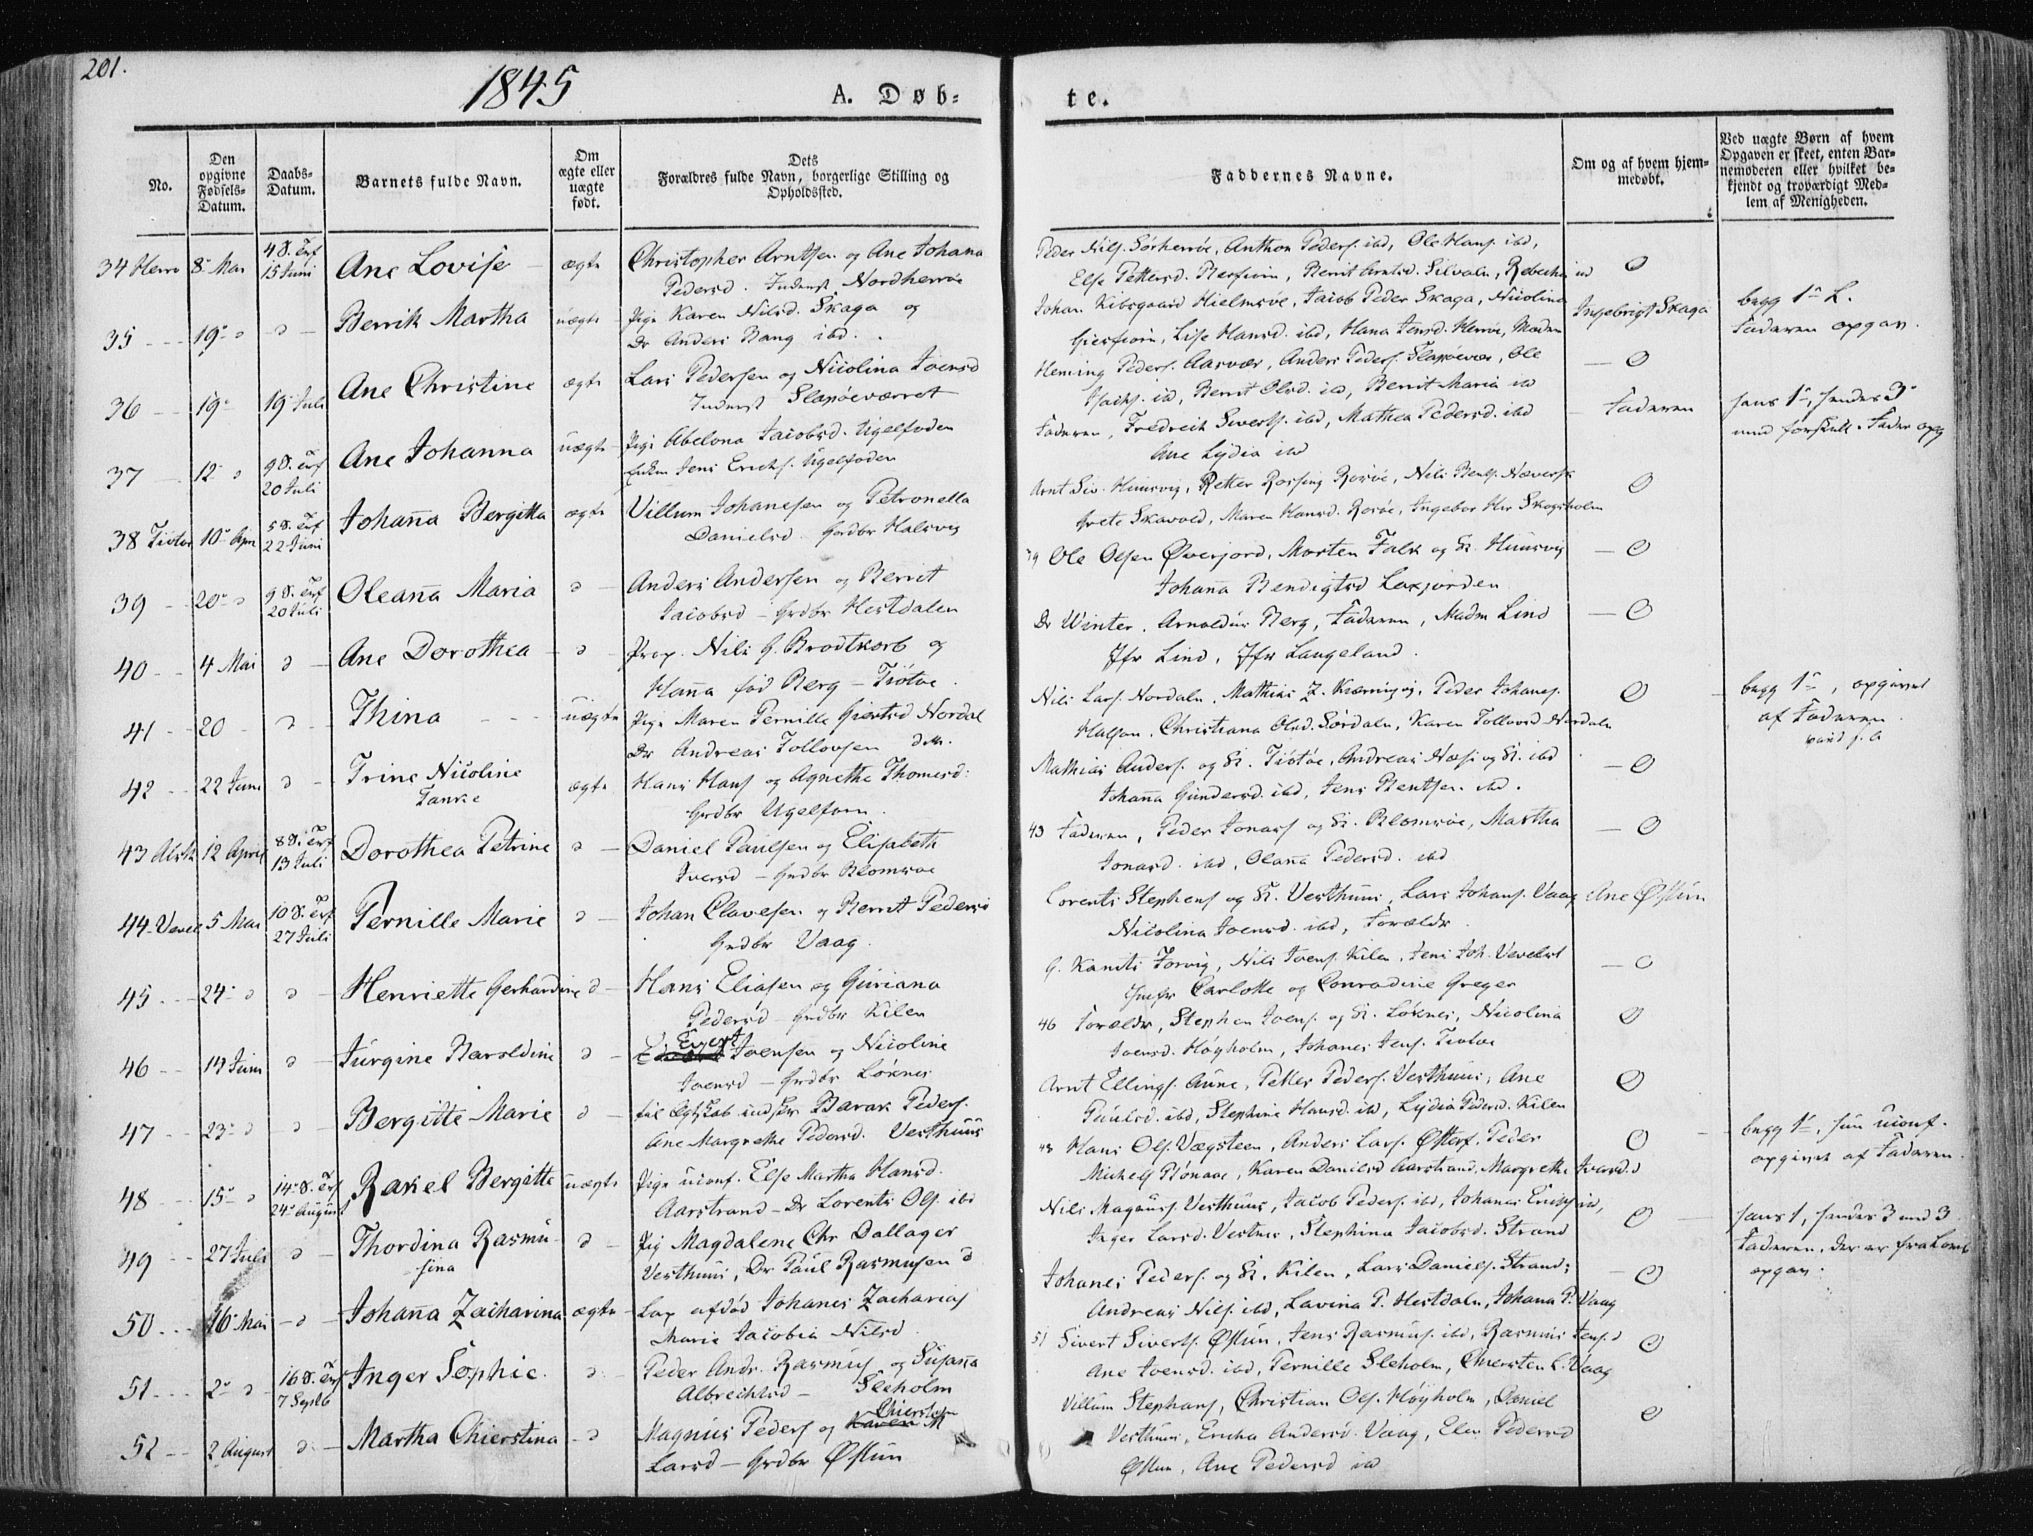 201.
1845
A. Døb-
te.
No.
Den opgivne Fødsels-Datum.
Daabs-Datum.
Barnets fulde Navn.
Om ægte eller uægte født.
Dets Forældres fulde Navn, borgerlige Stilling og Opholdssted.
Faddernes Navne.
Om og af hvem hjem-medøbt.
Ved uægte Børn af hvem Opgaven er skeet, enten Bar-nemoderen eller hvilket be-kjendt og troværdigt Med-lem af Menigheden.
34 Herrø 8 Mai 4 S. Trf 15 Juni Ane Lovise ægte Christopher Arntsen og Ane Johana
Pedersd. Inderst Nordherrøe
Peder Nils. Sørherrøe, Anthon Peders. ibd, Ole Hans. ibd,
Else Pettersd. Berrit Arntsd. Silvaln, Rebecka ibd
35 19 d d Berrik Martha uægte Pige Karen Nilsd. Skaga og
Dr Anders Bang ibd.
Johan Kibsgaard Hielmsøe, Jacob Peder Skaga, Nicolina
Lise Hansd. ibd, Hana Jensd. Herrøe, Ingebrigt Skaga
begg 1ste L.
Faderen opgav.
36 19 19 Juli Ane Christine ægte Lars Pedersen og Nicolina Ivensd
Inderst Slapøeværet
Heming Peders. Aasvær, Anders Peders. Slapøevær, Ole
Isachs. ibd, Berrit Olsd. ibd, Berrit Maria ibd
37 12 d 9 S. Trf 20 Juli Ane Johanna uægte Pige Abelona Jacobsd. Ugelfoden
Jens Ericks. Ugelfoden
Faderen, Fredrich Siverts. ibd, Mathea Pedersd. ibd
Ane Lydia ibd
Faderen
hans 1, hendes 3
med forskjell. Fader opg
38 Tiøtøe 10 Apr 5 S. Trf 22 Juni Johaña Bergitta ægte Villum Johanesen og Petronella
Danielsd. Grdbr Halsvig
Arnt Siv. Huusvig, Petter Rossing Rosøe, Nils Bents. Næversk
Grete Skavold, Maren Hansd. Rosøe, Ingebor Hr Skogsholm
39 20 d 9 S. Trf 20 Juli Oleaña Maria d Anders Andersen og Berrit
Jacobsd - Grdbr Hestdalen
Ole Olsen Øverjord, Morten Falk og K. Huusvig
Johaña Bendigtsd Laxjorden
40 4 Mai d Ane Dorothea d Prop. Nils G. Brodtkorb og
Haña fød Berg - Tiøtøe.
Dr Winter, Arnoldus Berg, Faderen, Madm Lind
Jfr Lind, Jfr Langeland.
41 20 d Thina uægte Pige Maren Pernille Giertsd Nordal
Dr Andreas Tollovsen do.
Nils Lars. Nordaln, Mathias Z. Peder Johanes.
Halson, Christiana Olsd. Sørdaln, Karen Tollovsd Nordaln
begg 1, opgivet
af Faderen
42 22 Juni d Trine Nicoline
Tanke
ægte Hans Hans. og Agnethe Thomesd:
Grdbr Ugelfoen.
Mathias Anders. og K. Tiøtøe, Andreas Næs og K. ibd
Johaña Gundersd. ibd, Jens Bentsen ibd.
43 Alsth 12 April 8 S. Trf 13 Juli Dorothea Petrine d Daniel Paulsen og Elisabeth
Iversd - Grdbr Blomsøe
43 Faderen, Peder Jonas. og K. Blomsøe, Martha
Jonasd. ibd, Olaña Pedersd. ibd
44 Vevel 5 Mai 10 S. Trf 27 Juli Pernille Marie d Johan Olavesen og Berrit Pedersd
Grdbr Vaag.
Lorents Stephens. og K. Vesthuus, Lars Johans. Vaag Ane Østun
Nicolina Ivensd. ibd, Forældr.
45 24 d d Henriette Gerhardine d Hans Eliasen og Guriana
Pedersd - Grdbr Kilen
G. Forvig, Nils Ivens. Kilen, Jens Joh. Vevelst
Jmfr Carlotte og Conradine Greger
46 14 Juni d Jürgine Haroldine d Evert Ivensen og Nicoline
Ivensd - Grdbr Løknes
46 Forældr, Stephen Ivens. og K. Løknes, Nicolina
Ivensd. Høyholm, Johanes Jens. Tiøtøe
47 23 d d Bergitte Marie d til Ægtskab indskr Barak Peders.
Ane Margrethe Pedersd. Vesthuus
Arnt Ellings. Aune, Petter Peders. Vesthuus, Ane
Paulsd. ibd, Stephine Hansd. ibd, Lydia Pedersd. Kilen
48 15 d 14 S. Trf 24 August Rakel Bergitte uægte Pige uconf. Else Martha Hansd.
Aarstrand - Dr Lorents Ols. ibd
48 Hans Ols. Vægsteen, Anders Lars. Østerf. Peder
Michels. Karen Danielsd Aarstrand, Margrethe Ivarsd. d
begg 1, hun uconf.
opgivet af Faderen.
49 27 Juli d Thordina Rasmu-
sina
d Pig Magdalene Chr Dallager
Vesthuus, Dr Paul Rasmusen d
Nils Magnus. Vesthuus, Jacob Peders. ibd, Johanes Ericks. ibd,
Inger Larsd. Vestnes, Stephina Jacobsd. Strand
hans 1, hendes 3 med 3
Faderen, der er fra Lom
opgav.
50 16 Mai d Johaña Zacharina ægte Lap afdød Johanes Zacharias
Marie Jacobia Nilsd.
Johanes Peders. og K. Kilen, Lars Daniels. Strand,
Andreas Nils. ibd, Lavina P. Hestdaln, Johana P. Vaag
51 2 d 16 S. Trf 7 Septb Inger Sophie. d. Peder Andr. Rasmus. og Susaña
Albrechtsd - Sleholm
51 Sivert Siverts. Østun, Jens Rasmus. ibd, Rasmus Jens. d
Ane Ivensd. ibd, Pernille Sleholm, Chiersten L. Vaag
52 2 August d. Martha Chierstina d Magnus Peders og Chiersten
Larsd - Grdbr Østun
Villum Stephans., Christian Ols. Høyholm, Daniel
Vesthuus, Ericha Andersd. Vaag, Elen Pedersd
Østun, Ane Pedersd ibd